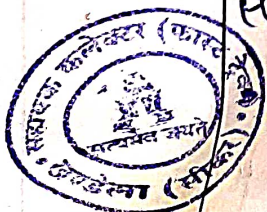 सहायक कलेक्टर (फास्ट ट्रैक)
सत्यमेव जयते
(सीकर)